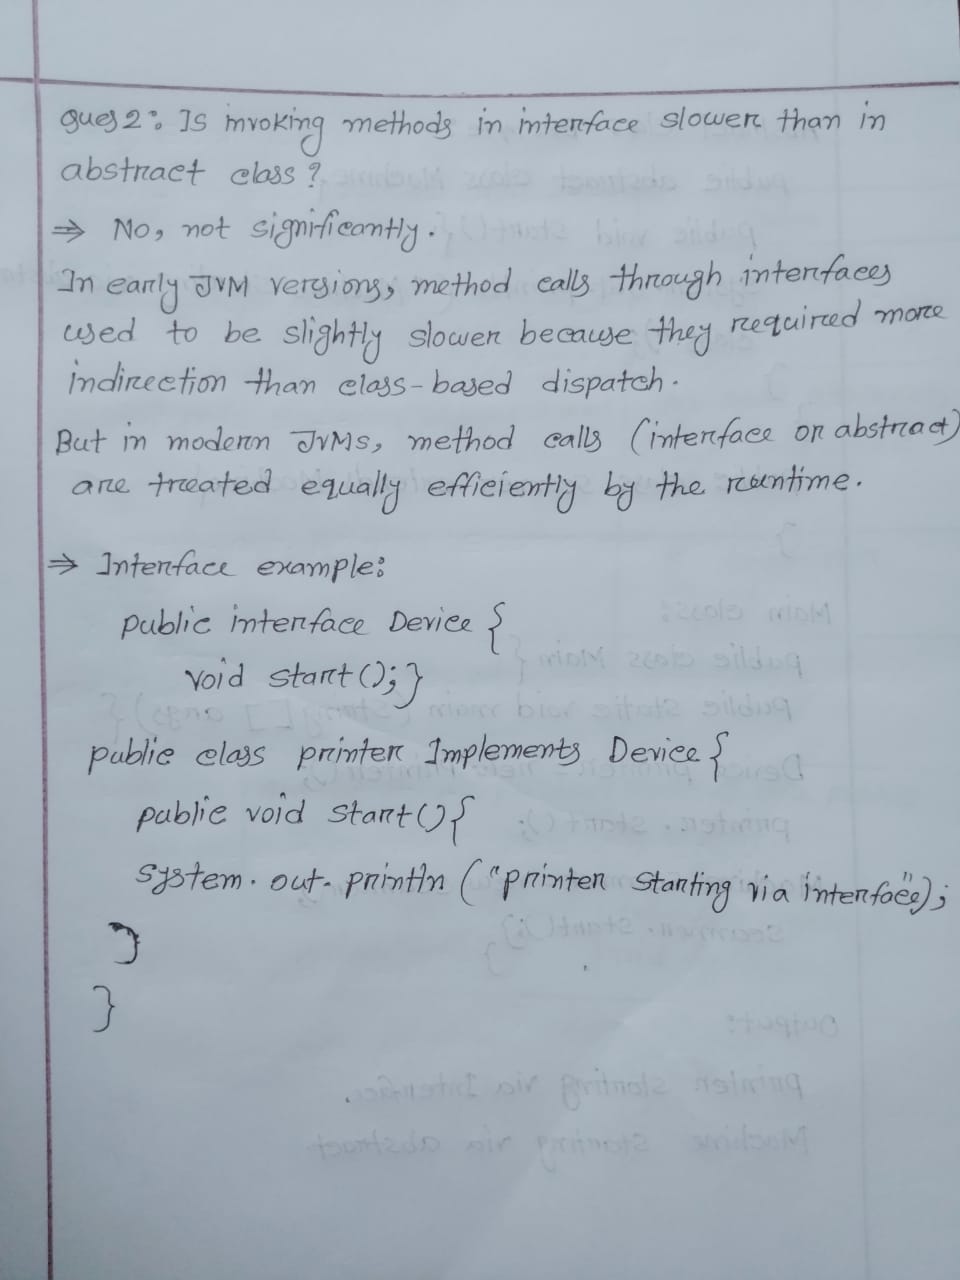 ques 2: Is invoking methods in interface slower than in
abstract class?
⇒ No, not significantly.
In early JVM versions, method calls through interfaces
used to be slightly slower because they required more
indirection than class-based dispatch.
But in modern JVMs, method calls (interface or abstract)
are treated equally efficiently by the runtime.
⇒ Interface example:
public interface Device {
void start();}
public class printer Implements Device {
public void start(){
system.out.println ("printer starting via interface");
}
}